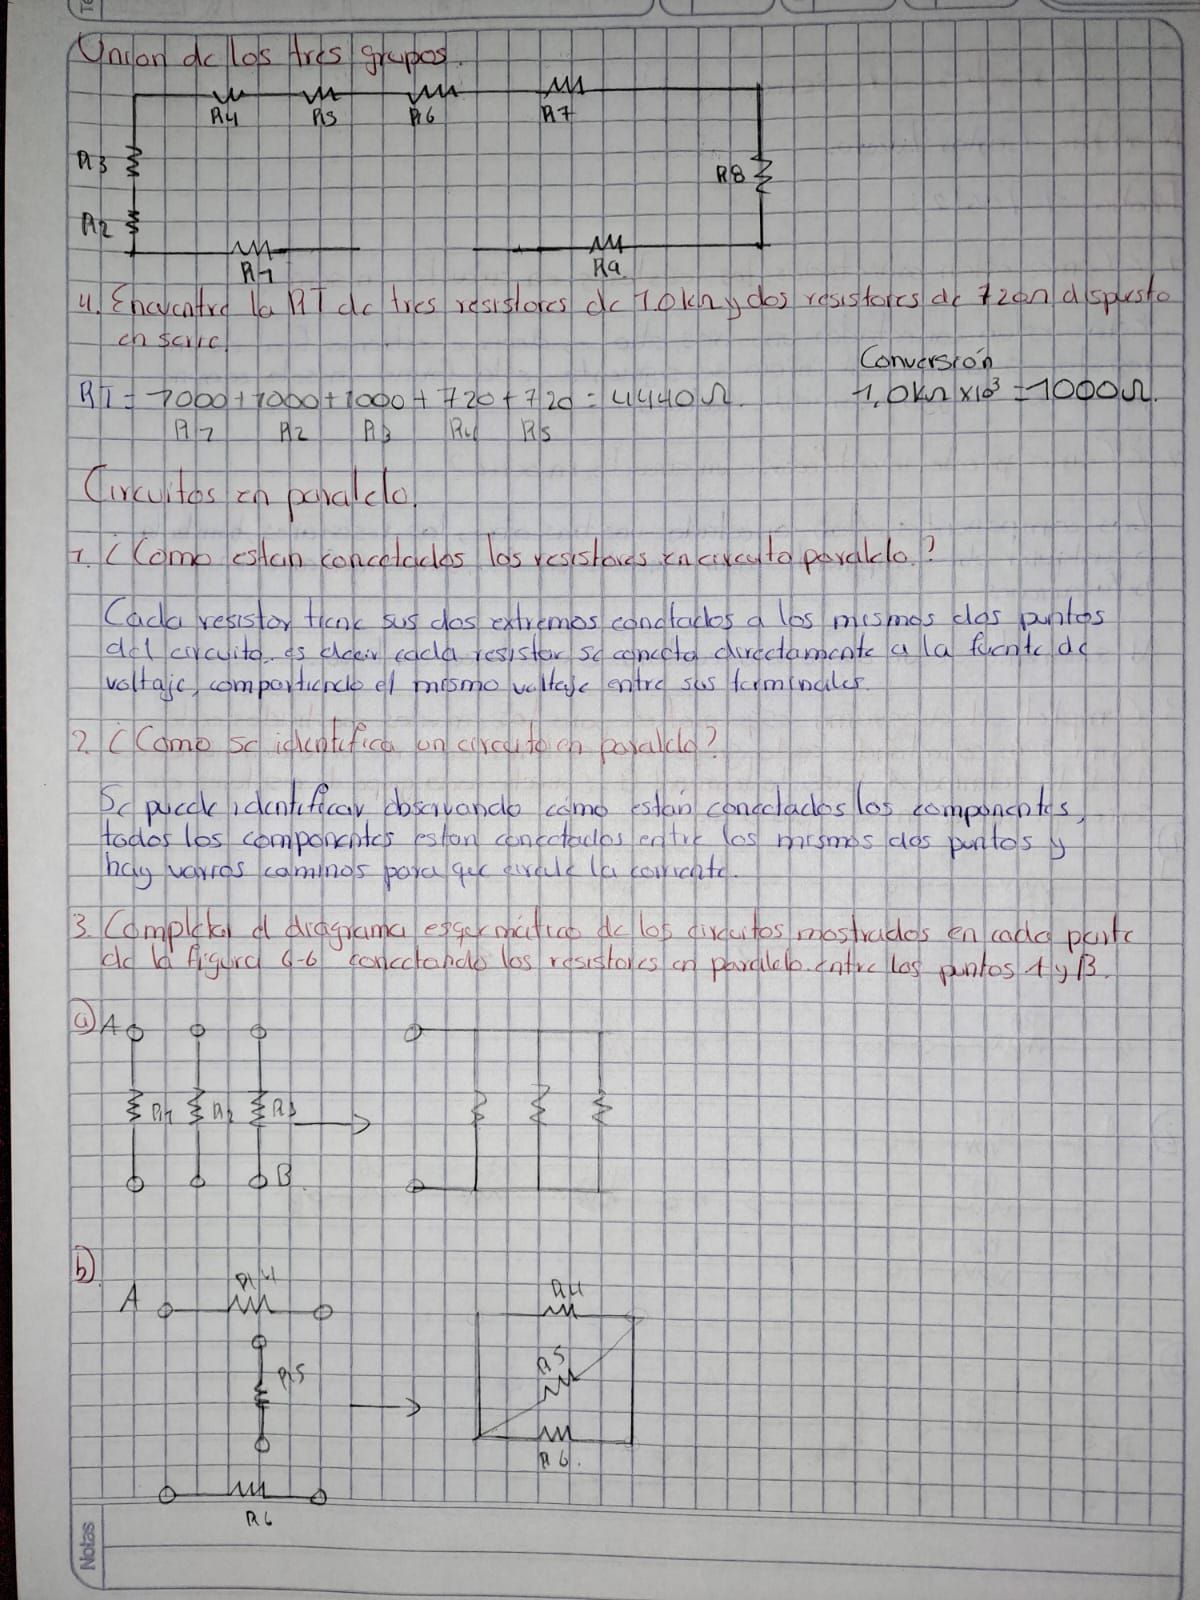 Union de los tres grupos.
R4 R5 R6 R7
R3
R8
R2
R1 R9
4. Encuentre la RT de tres resistores de 1.0kΩ y dos resistores de 720Ω dispuesto
en serie.
Conversión
RT = 1000+1000+1000+720+720=4440Ω. 1,0kΩ x10³ =1000Ω.
R1 R2 R3 R4 R5
Circuitos en paralelo.
1. ¿Como estan concetados los resistores en circuito paralelo?
Cada resistor tiene sus dos extremos conctados a los mismos dos puntos
del circuito. es decir cada resistor se conecta directamente a la fuente de
voltaje, compartiendo el mismo voltaje entre sus terminales.
2. ¿Como se identifica un circuito en paralelo?
Se puede identificar observando cómo están conectados los componentes,
todos los componentes estan conectados entre los mismos dos puntos y
hay varios caminos para que circule la corriente.
3. Completar el diagrama esquemático de los circuitos mostrados en cada parte
de la figura 6-6 conectando los resistores en paralelo entre los puntos A y B.
a) A
R1 R2 R3
B
b)
A R4 R4
R5 R5
R6.
R6
Notas